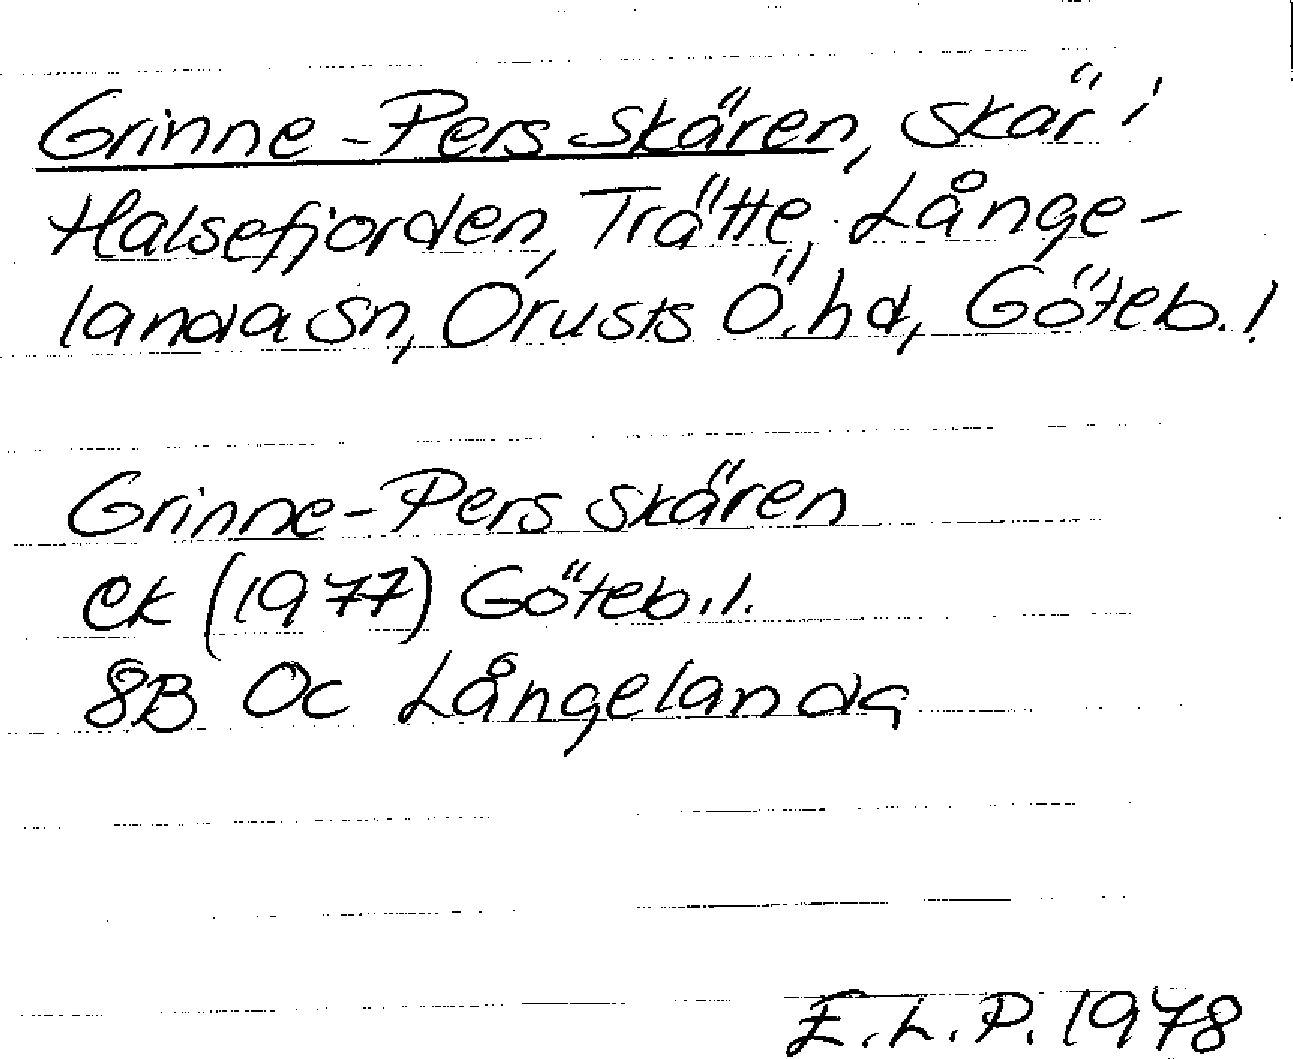 Grinne-Pers skären, skär i
Halsefjorden, Trätte, Långe-
landa sn, Orusts Ö. hd, Göteb. l
Grinne-Pers skären
ek (1977) Göteb. l.
8B 0c Långelanda
E.L.P. 1978